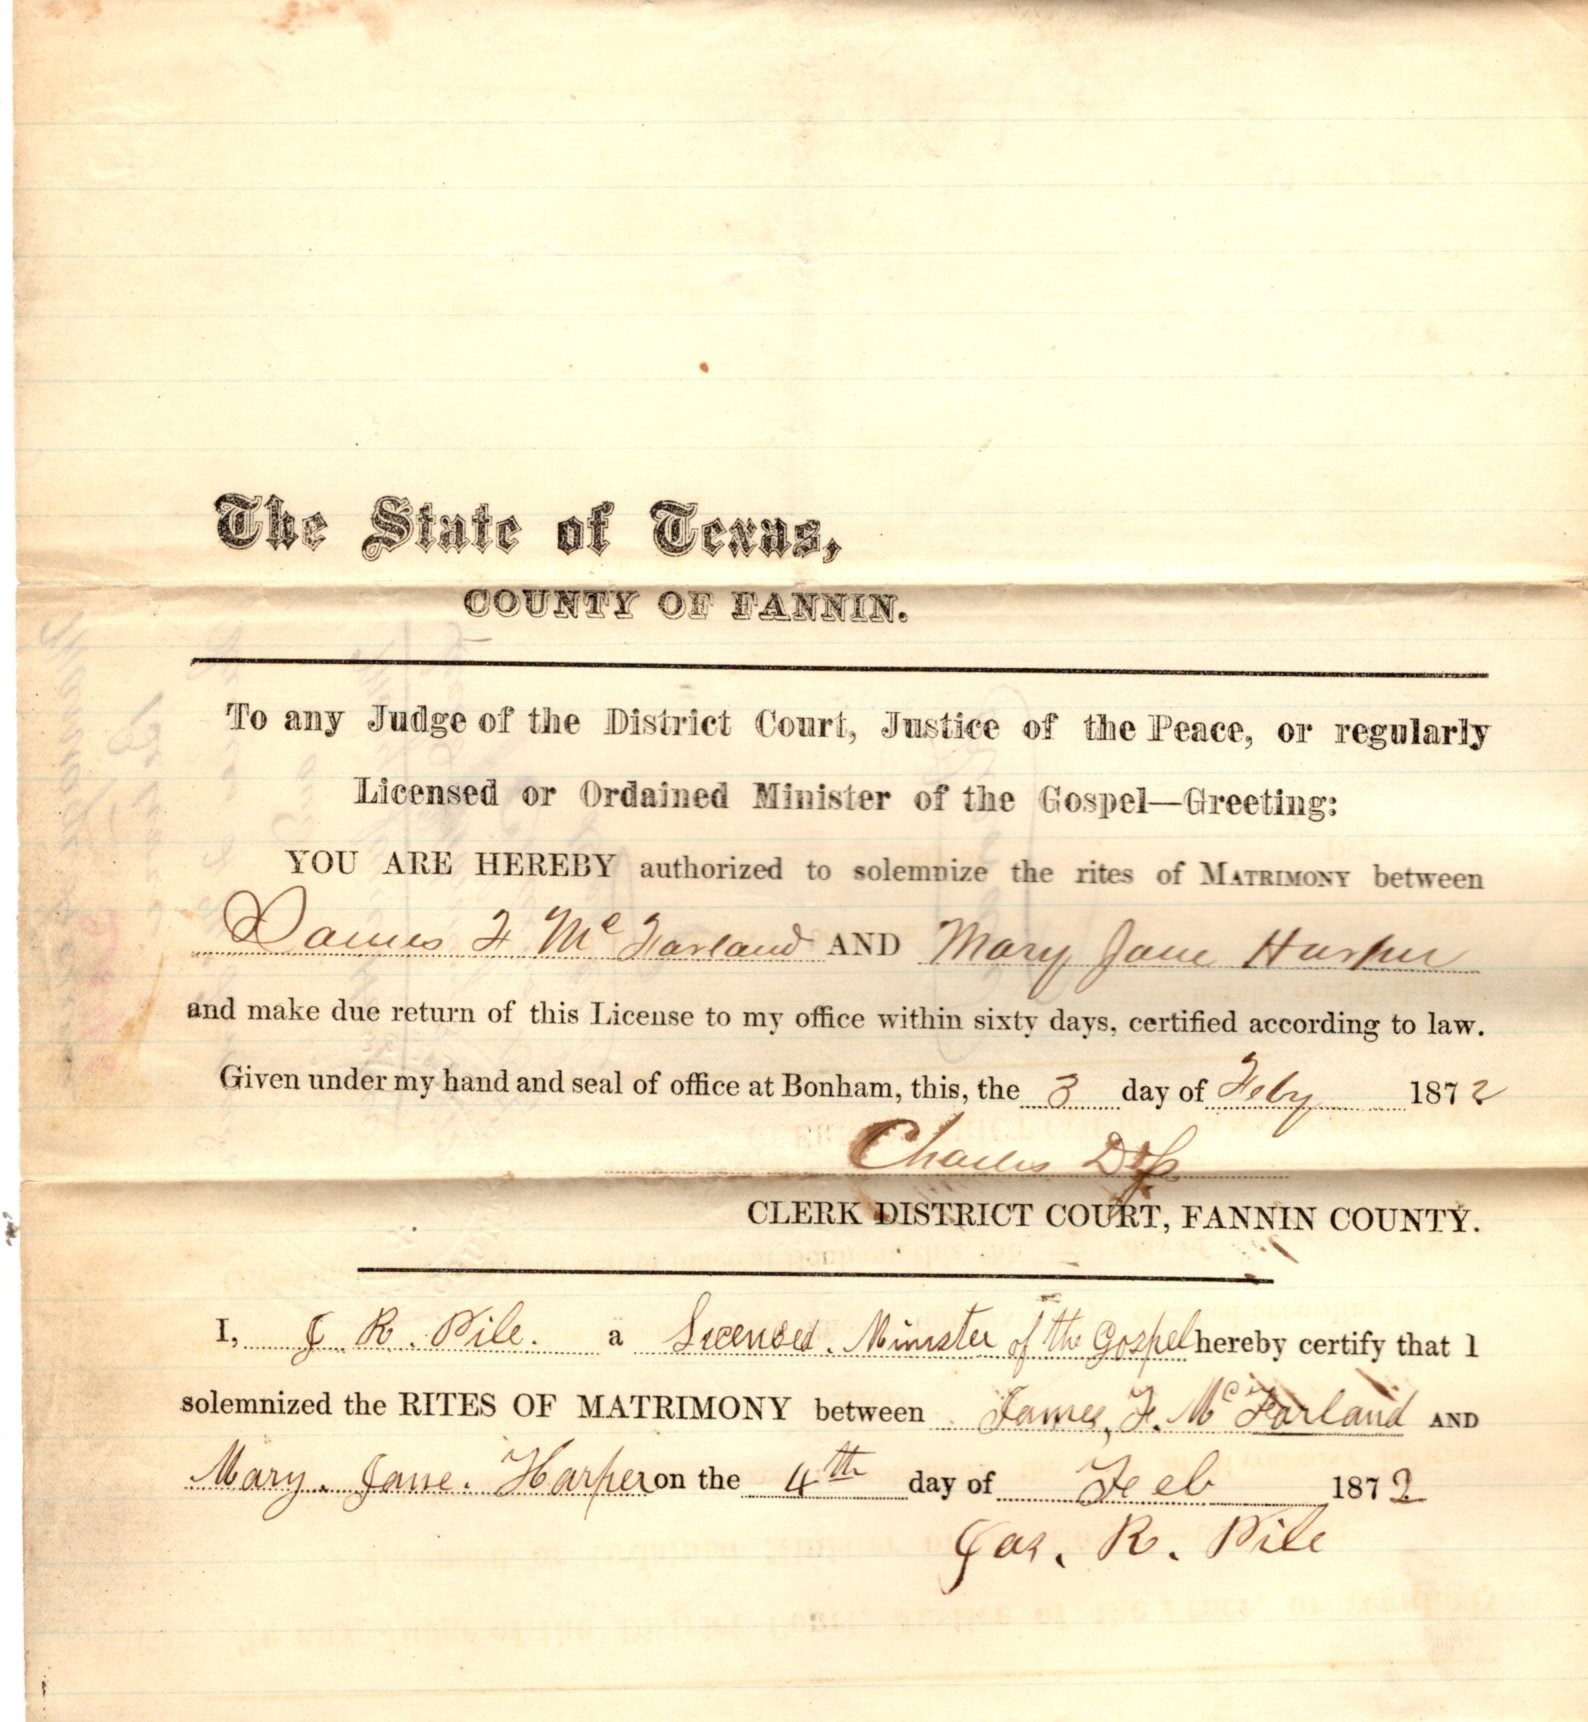 The State of Texas,
COUNTY OF FANNIN.
To any Judge of the District Court, Justice of the Peace, or regularly
Licensed or Ordained Minister of the Gospel—Greeting:
YOU ARE HEREBY authorized to solemnize the rites of MATRIMONY between
James F McFarland AND Mary Jane Harper
and make due return of this License to my office within sixty days, certified according to law.
Given under my hand and seal of office at Bonham, this, the 3 day of Feby 1872
Charles
CLERK DISTRICT COURT, FANNIN COUNTY.
I, J. R. Pile. a Licensed. Minister of the Gospel hereby certify that I
solemnized the RITES OF MATRIMONY between James, F. McFarland AND
Mary. Jane. Harper on the 4th day of Feeb 1872
Jas. R. Pile